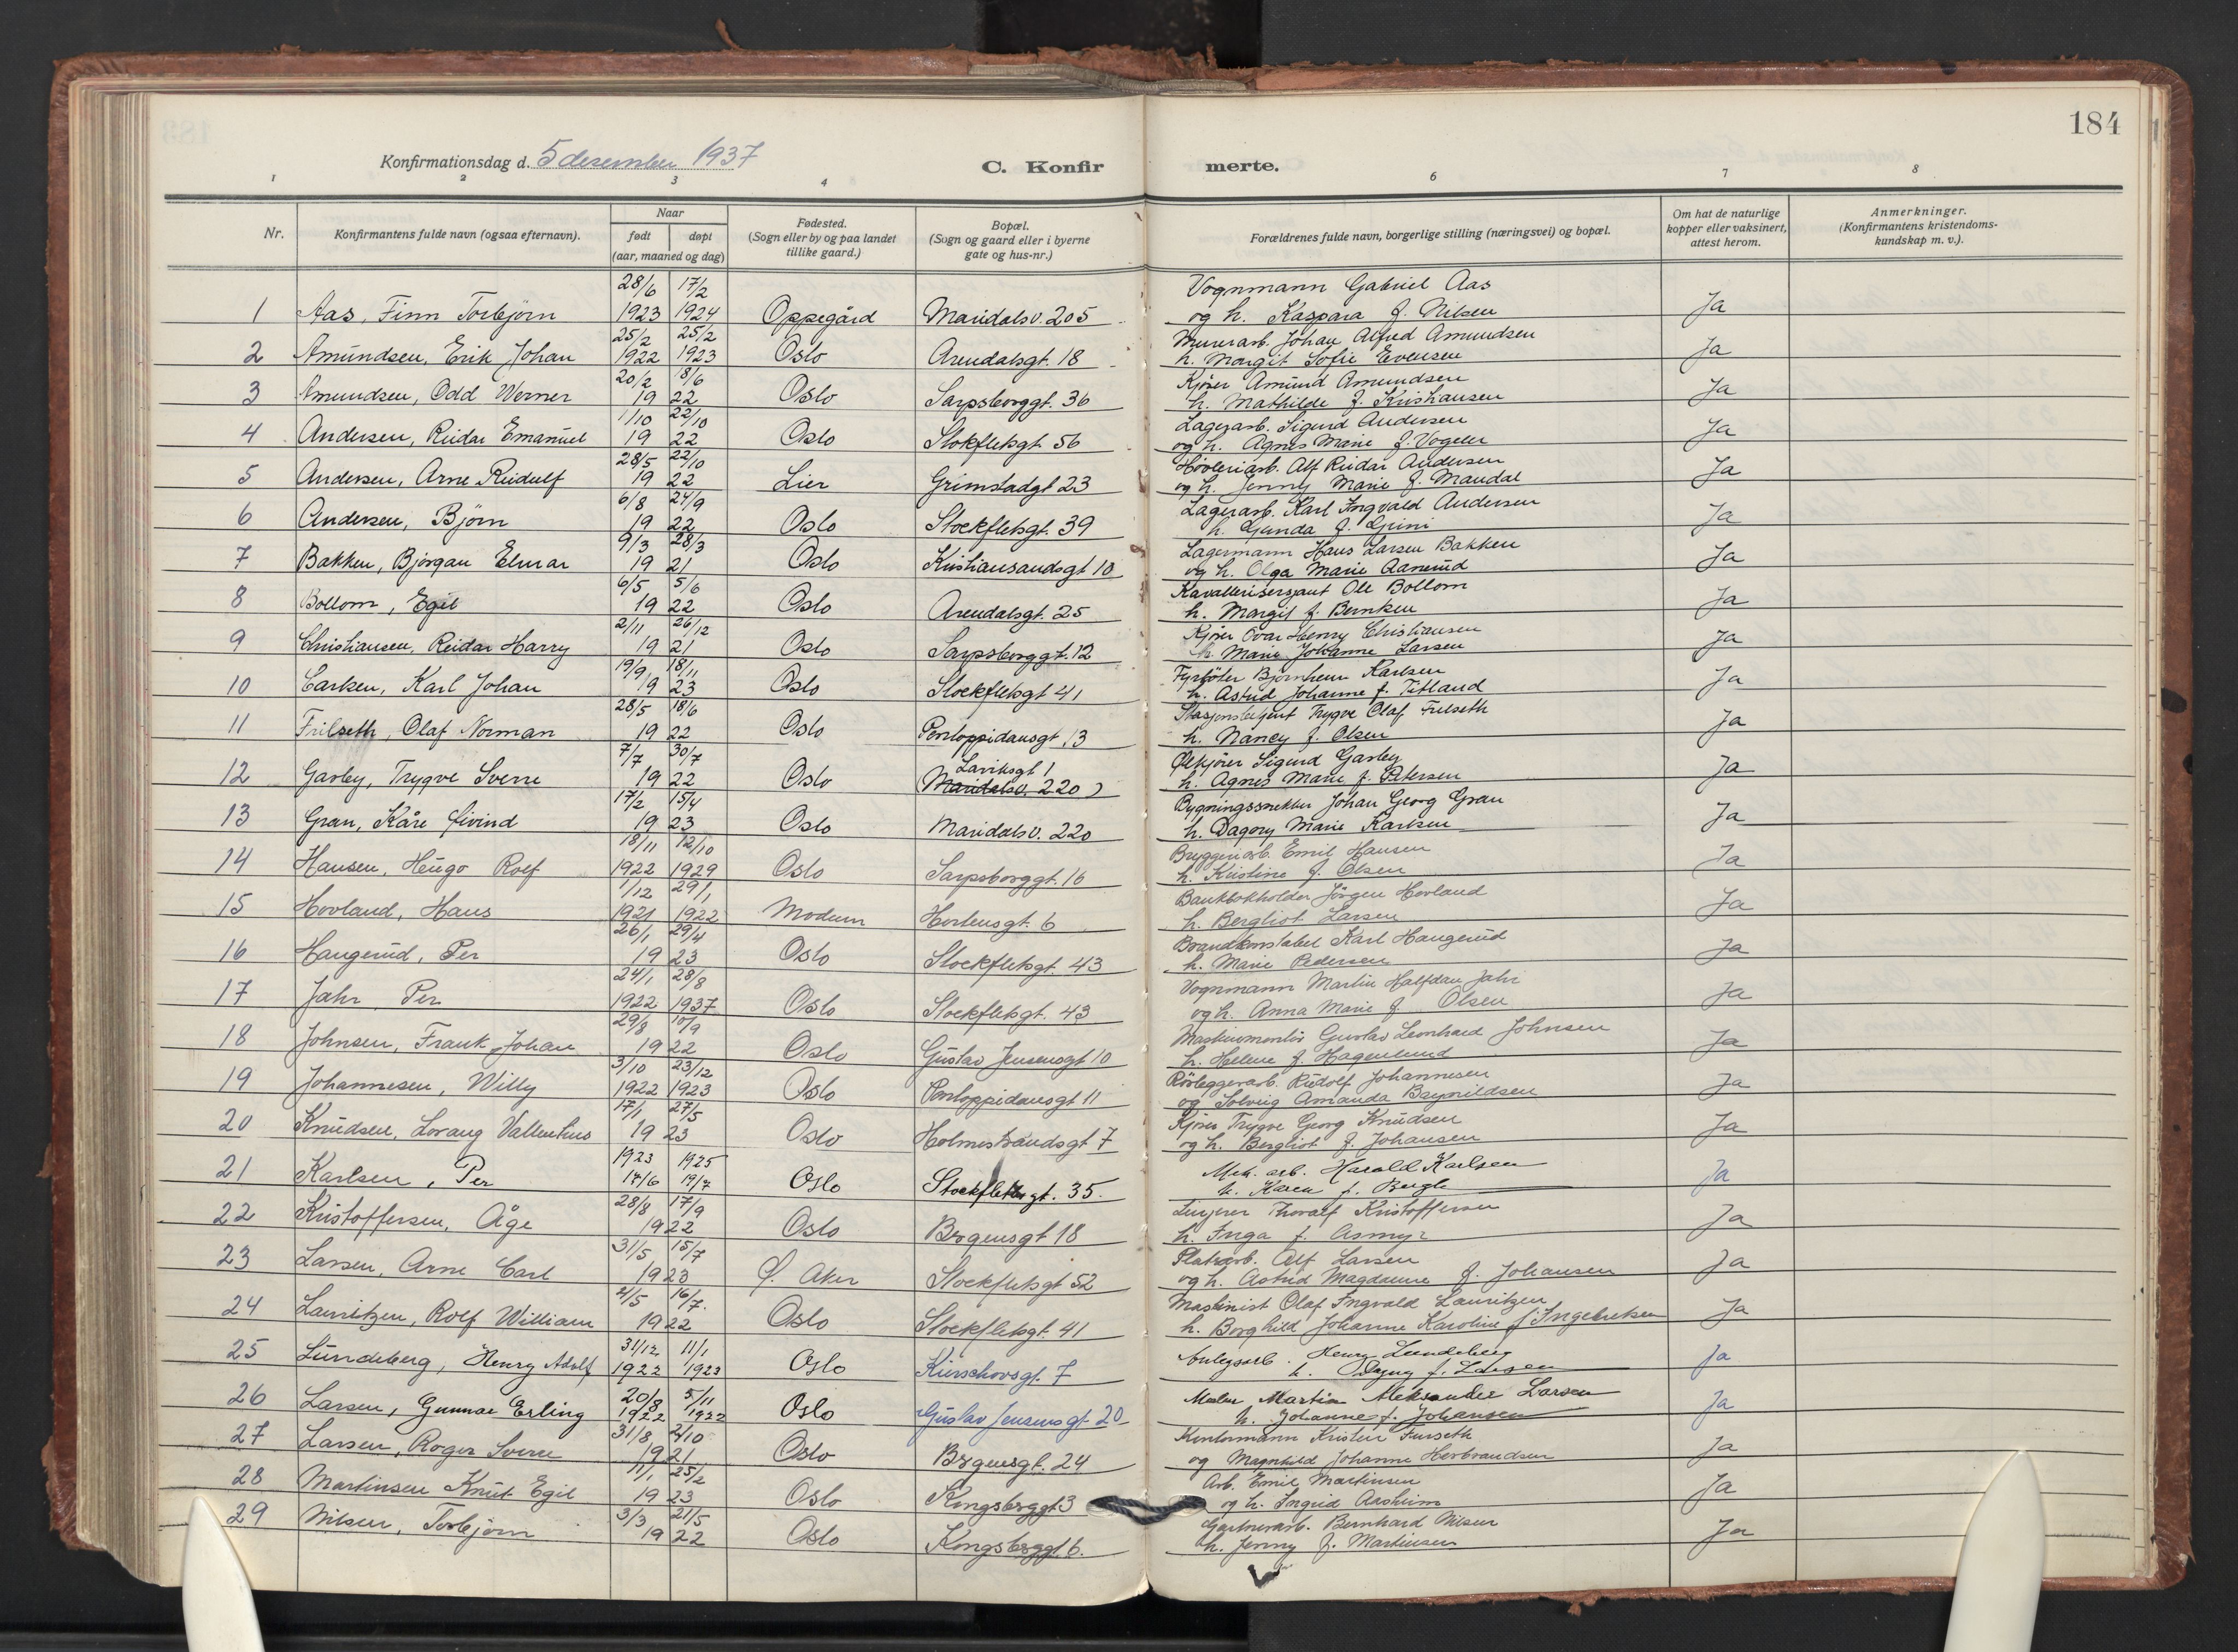 184
Konfirmationsdag d. 5 desember 1937
C. Konfir merte.
1 2 3 4 6 7 8
Nr.
Konfirmantens fulde navn (ogsaa efternavn).
Naar
født døpt
(aar, maaned og dag)
Fødested.
(Sogn eller by og paa landet
tillike gaard.)
Bopæl.
(Sogn og gaard eller i byerne
gate og hus-nr.)
Forældrenes fulde navn, borgerlige stilling (næringsvei) og bopæl.
Om hat de naturlige
kopper eller vaksinert,
attest herom.
Anmerkninger.
(Konfirmantens kristendoms-
kundskap m. v.).
28/6 17/2 Vognmann Gabriel Aas
1 Aas, Finn Torbjørn 1923 1924 Oppegård Maridalsv. 205 og h. Kaspara f. Nilsen Ja
25/2 25/2 Murerarb. Johan Alfred Amundsen
2 Amundsen, Erik Johan 1922 1923 Oslo Arendalsgt. 18 h. Margit Sofie Evensen Ja
20/2 18/6 Kjører Amund Amundsen
3 Amundsen, Odd Werner 19 22 Oslo Sarpsborggt. 36 h. Mathilde f. Kristiansen Ja
1/10 22/10 Lagerarb. Sigurd Andersen
4 Andersen, Reidar Emanuel 19 22 Oslo Stokfletsgt. 56 og h. Agnes Marie f. Vogeler Ja
28/5 22/10 Høvleriarb. Alf Reidar Andersen
5 Andersen, Arne Reidulf 19 22 Lier Grimstadgt 23 og h. Jenny Marie f. Mandal Ja
6/8 24/9 Lagerarb. Karl Ingvald Andersen
6 Andersen, Bjørn 19 22 Oslo Stockfletsgt. 39 h. Gunda f. Grini Ja
9/3 28/3 Lagermann Hans Larsen Bakken
7 Bakken, Bjørgan Elmar 19 21 Oslo Kristiansandsgt 10 og h. Olga Marie Aanerud Ja
6/5 5/6 Kavallerisersjant Ole Bollom
8 Bollom, Egil 19 22 Oslo Arendalsgt. 25 h. Margit f. Bernken Ja
2/11 26/12 Kjører Ovar Henry Christiansen
9 Christiansen, Reidar Harry 19 21 Oslo Sarpsborggt. 12 h. Marie Johanne Larsen Ja
19/9 18/11 Fyrbøter Bjarnhem Karlsen
10 Carlsen, Karl Johan 19 23 Oslo Stockfletsgt 41 h. Astrid Johanne f. Titland Ja
28/5 18/6 Stasjonsbetjent Trygve Olaf Frilseth
11 Frilseth, Olaf Norman 19 22 Oslo Pontoppidansgt 13 h. Nancy f. Olsen Ja
7/7 30/7 Larviksgt 1 Ølkjører Sigurd Gasbey
12 Gasbey, Trygve Sverre 19 22 Oslo Maridalsv. 220) h. Agnes Marie f. Petersen Ja
17/2 15/4 Bygningssnekker Johan Georg Gran
13 Gran, Kåre Eivind 19 23 Oslo Maridalsv. 220 h. Dagny Marie Karlsen Ja
18/11 12/10 Bryggeriarb. Emil Hansen
14 Hansen, Hugo Rolf 1922 1929 Oslo Sarpsborggt. 16 h. Kristine f. Olsen Ja
1/12 29/1 Bankbokholder Jørgen Hovland
15 Hovland, Hans 1921 1922 Modum Hortensgt. 6 h. Bergliot Larsen Ja
26/1 29/4 Brandkonstabel Karl Haugerud
16 Haugerud, Per 19 23 Oslo Stockfletsgt. 43 h. Marie Pedersen Ja
24/1 28/8 Vognmann Martin Halfdan Jahr
17 Jahr, Per 1922 1937 Oslo Stockfletsgt. 43 og h. Anna Marie f. Olsen Ja
29/8 10/9 Maskinmontør Gustav Leonhard Johnsen
18 Johnsen, Frank Johan 19 22 Oslo Gustav Jensensgt 10 h. Helene f. Hagenlund Ja
3/10 23/12 Rørleggerarb. Rudolf Johannesen
19 Johannesen, Willy 1922 1923 Oslo Pontoppidansgt 11 og Solveig Amanda Brynildsen Ja
17/1 27/5 Kjører Trygve Georg Knudsen
20 Knudsen, Lorang Vallenhus 19 23 Oslo Holmestrandsgt 7 og h. Bergliot f. Johansen Ja
1923 1925 Mek. arb. Harald Karlsen
21 Karlsen, Per 17/6 19/7 Oslo Stockfletsgt. 35. h. Karen f. Bergli Ja
28/8 17/9 Thoralf Kristoffersen
22 Kristoffersen, Åge 19 22 Oslo Bergensgt 18 h. Inga f. Asmyr Ja
31/5 15/7 Platearb. Alf Larsen
23 Larsen, Arne Carl 1923 Ø. Aker Stockfletsgt 52 og h. Astrid Magdanne f. Johansen Ja
2/5 16/7. Maskinist Olaf Ingvald Lauritzen
24 Lauritzen, Rolf William 19 22 Oslo Stockfletsgt. 41 h. Borghild Johanne Karoline f. Ingebretsen Ja
31/12 11/1 Anlegsarb. Henry Lundeberg
25 Lundeberg, Henry Adolf 1922 1923 Oslo Kierschowsgt. 7 h. Dagny f. Larsen Ja
20/8 5/11 Maler Martin Aleksander Larsen
26 Larsen, Gunnar Erling 1922 1922 Oslo Gustav Jensensgt. 20 h. Johanne f. Johansen Ja
31/8 2/10 Kontormann Kristen Furseth
27 Larsen, Roger Sverre 19 21 Oslo Bergensgt. 24 og Magnhild Johanne Herbrandsen Ja
11/1 25/2 Arb. Emil Martinsen
28 Martinsen Knut Egil 19 23 Oslo Kongsberggt 3 og h. Ingrid Aasheim Ja
3/3 21/5 Gartnerarb. Bernhard Nilsen
29 Nilsen, Torbjørn 19 22 Oslo Kongsberggt 6. h. Jenny f. Martinsen Ja